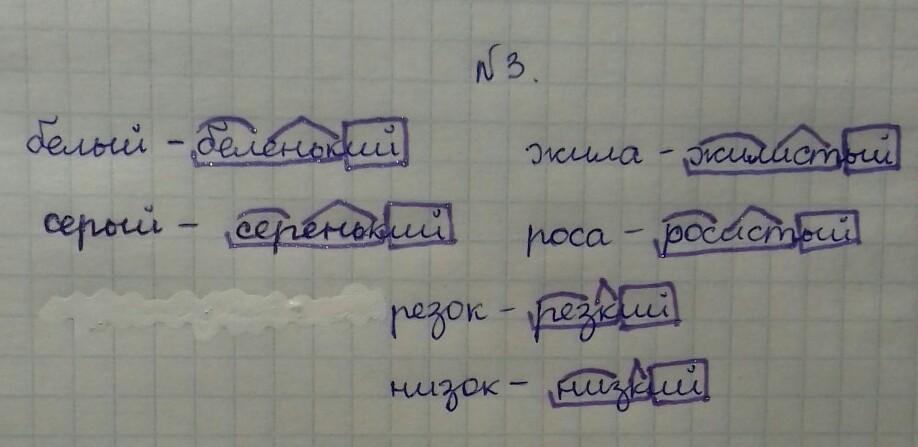 №3.
белый - беленький жила - жилистый
серый - серенький роса - росистый
резок - резкий
низок - низкий